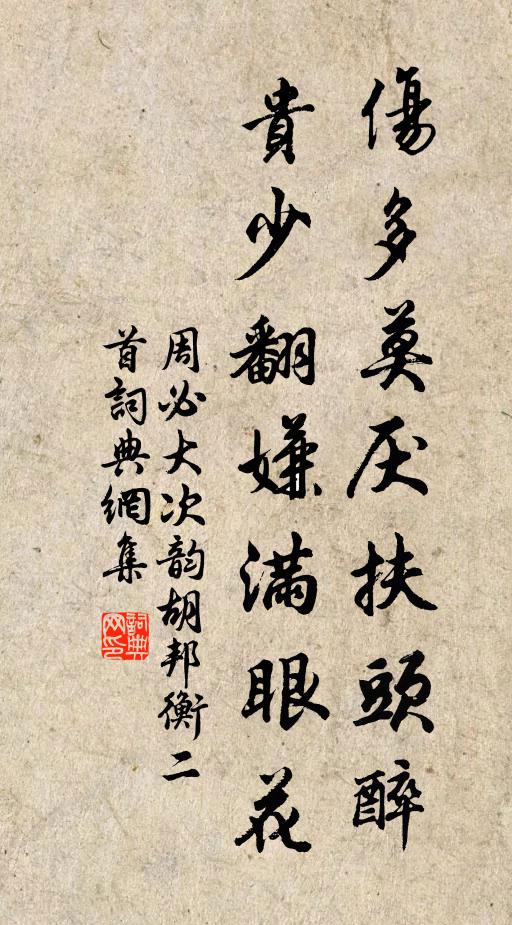 傷多莫厌扶頭醉
貴少翻嫌滿眼花
周必大次韵胡邦衡二
首詞典網集
詞典网印